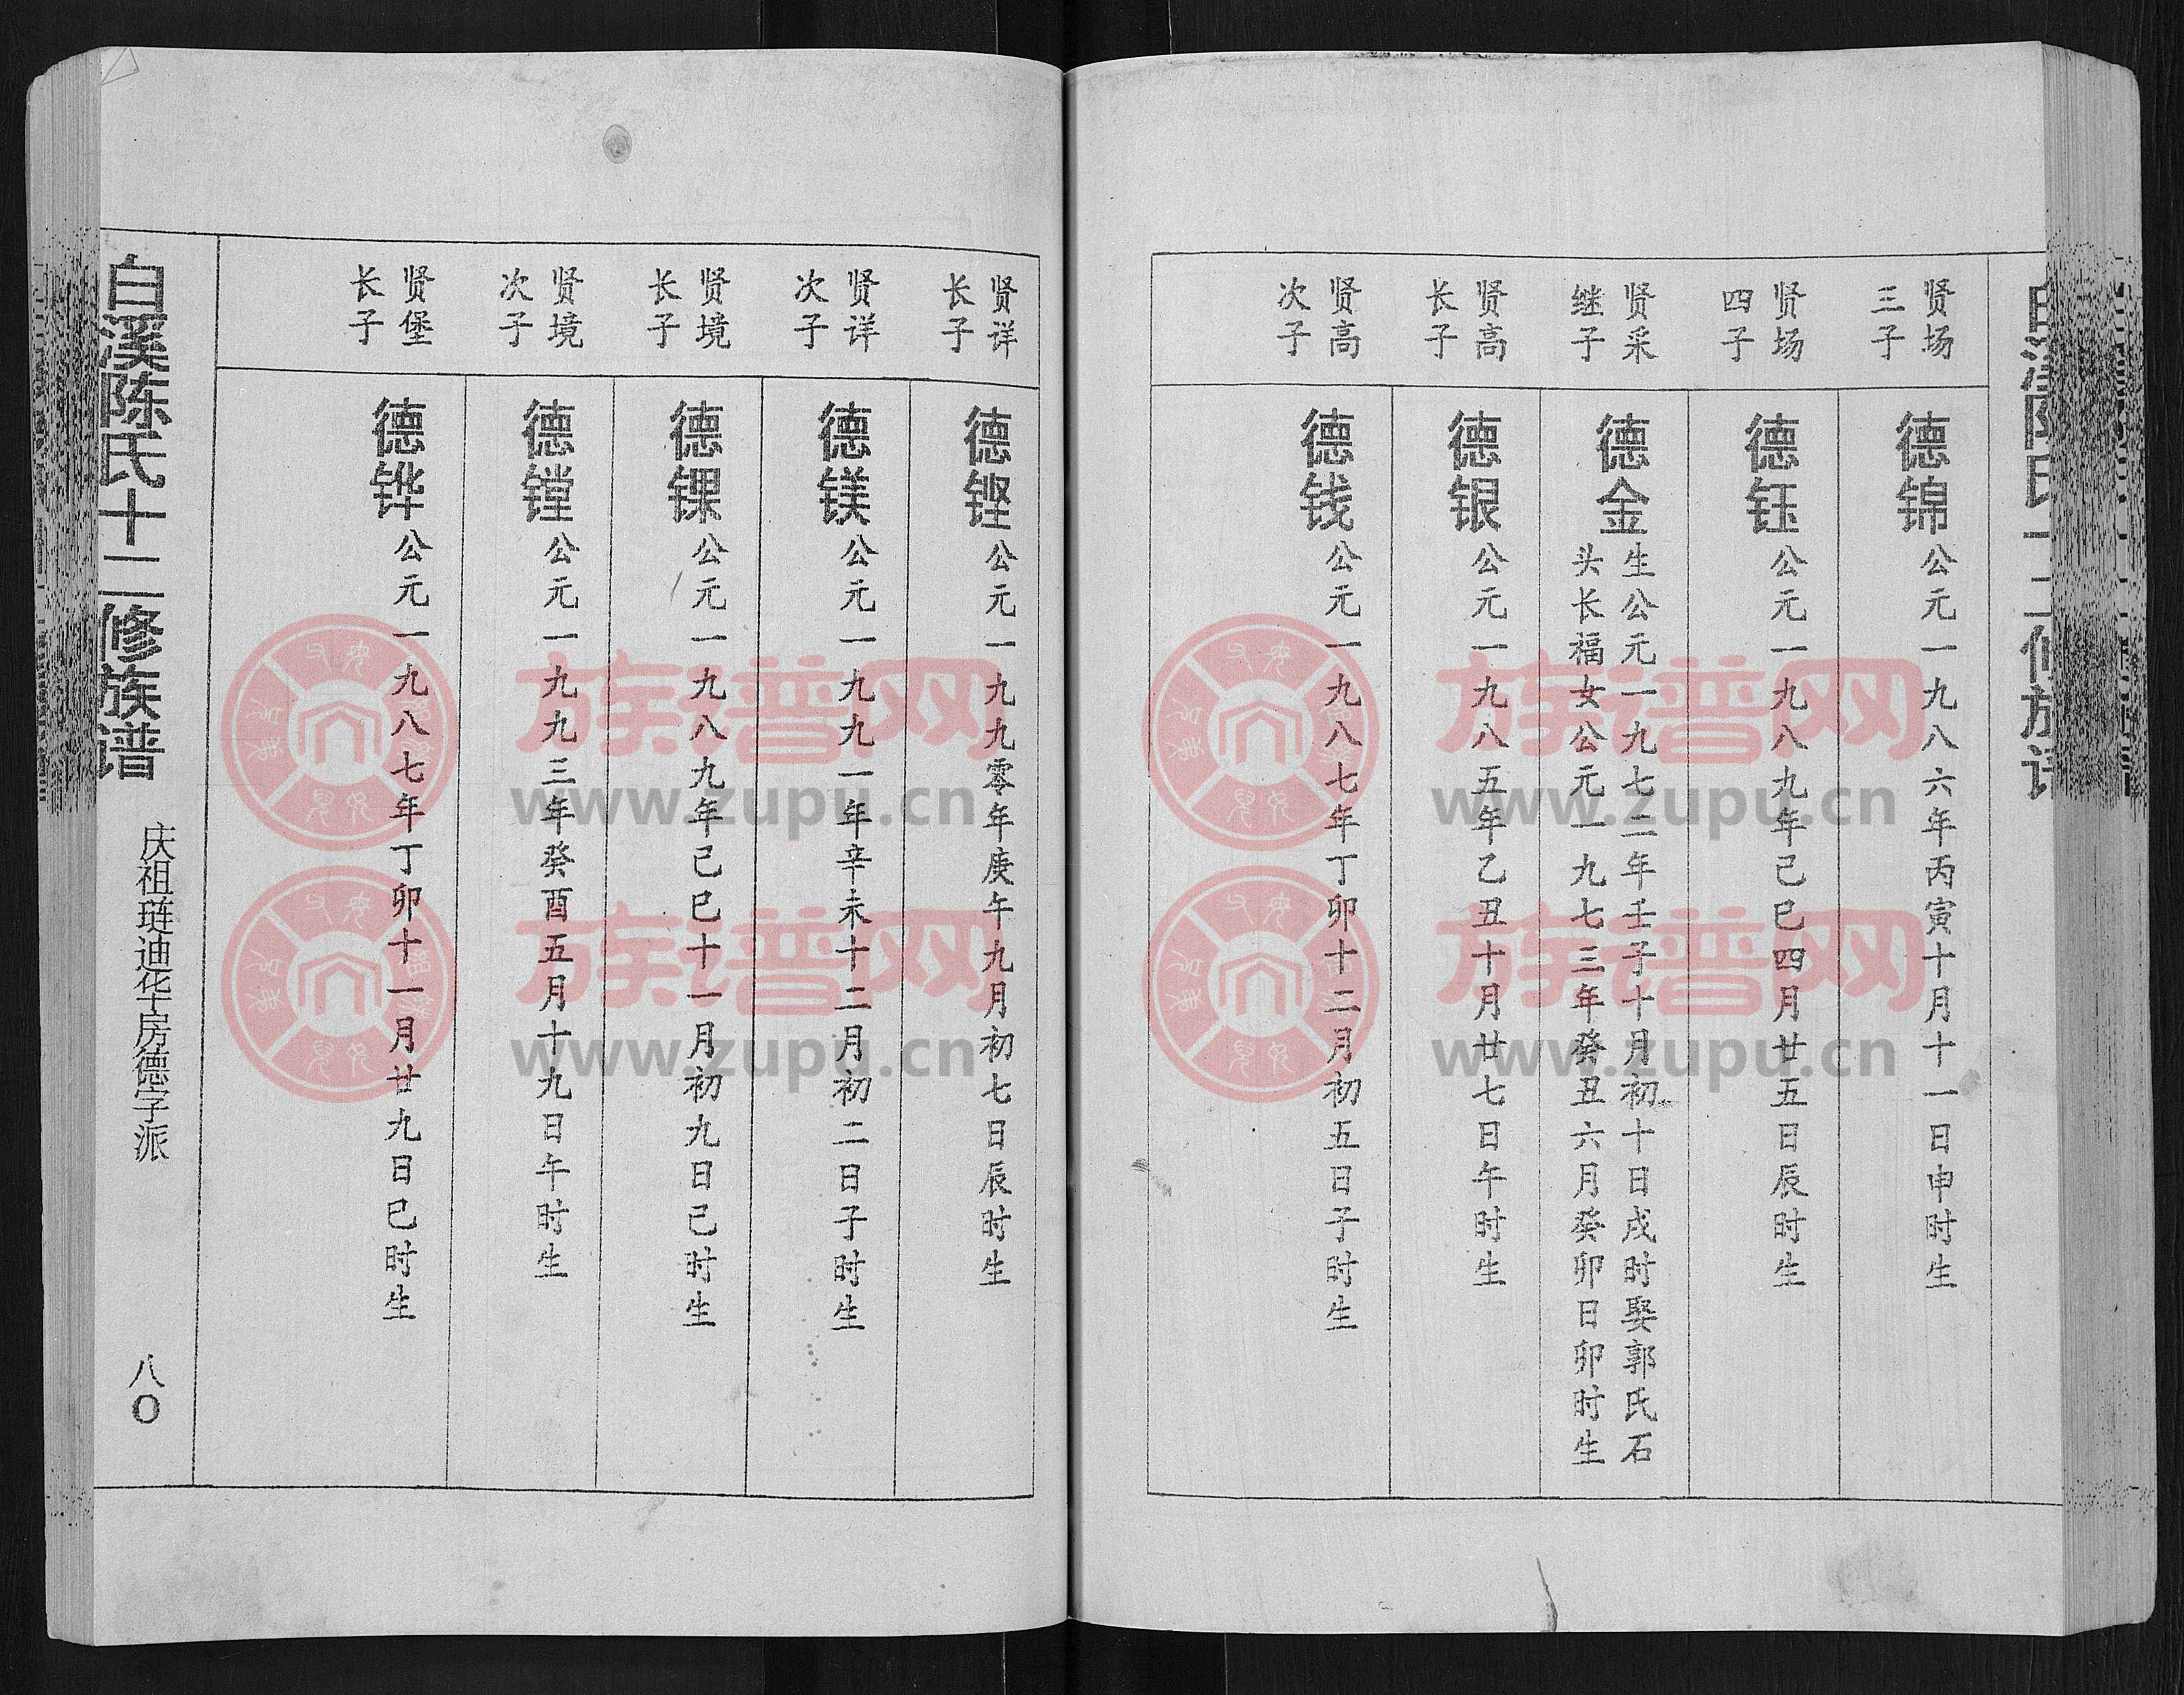 贤场
三子
德锦
公元一九八六年丙寅十月十一日申时生
贤场
四子
德钰
公元一九八九年己巳四月廿五日辰时生
贤采
继子
德金
生公元一九七二年壬子十月初十日戌时娶郭氏石
头长福女公元一九七三年癸丑六月癸卯日卯时生
贤高
长子
德银
公元一九八五年乙丑十月廿七日午时生
贤高
次子
德钱
公元一九八七年丁卯十二月初五日子时生
贤详
长子
德铿
公元一九九零年庚午九月初七日辰时生
贤详
次子
德镁
公元一九九一年辛未十二月初二日子时生
贤境
长子
德锞
公元一九八九年己巳十一月初九日己时生
贤境
次子
德镗
公元一九九三年癸酉五月十九日午时生
贤堡
长子
德铧
公元一九八七年丁卯十一月廿九日巳时生
白溪陈氏十二修族谱
庆祖琏迪华房德字派
八〇
族谱网
www.zupu.cn
族谱网
www.zupu.cn
族谱网
www.zupu.cn
族谱网
www.zupu.cn